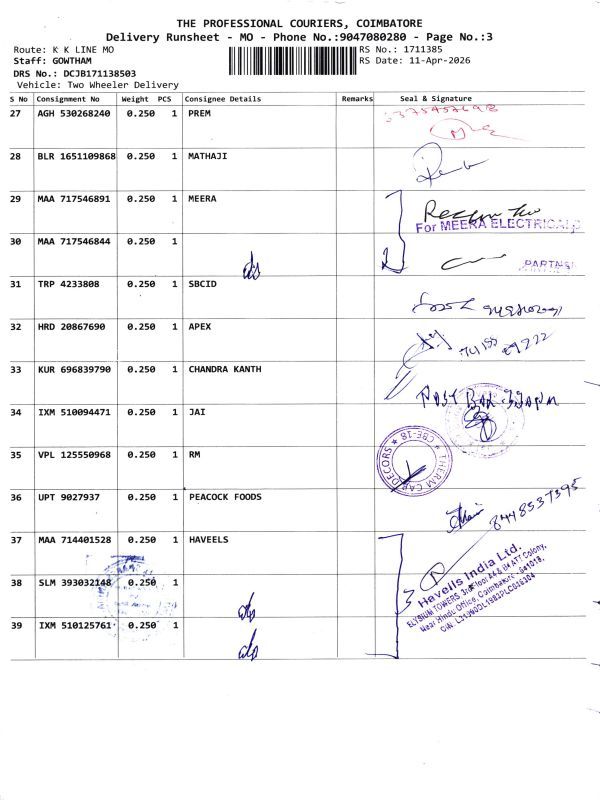 THE PROFESSIONAL COURIERS, COIMBATORE
Delivery Runsheet - MO - Phone No.:9047080280 - Page No.:3
Route: K K LINE MO
RS No.: 1711385
Staff: GOWTHAM
RS Date: 11-Apr-2026
DRS No.: DCJB171138503
Vehicle: Two Wheeler Delivery
S No Consignment No Weight PCS Consignee Details Remarks Seal & Signature
27 AGH 530268240 0.250 1 PREM
28 BLR 1651109868 0.250 1 MATHAJI
29 MAA 717546891 0.250 1 MEERA
For MEERA ELECTRICALS
30 MAA 717546844 0.250 1
31 TRP 4233808 0.250 1 SBCID
32 HRD 20867690 0.250 1 APEX
33 KUR 696839790 0.250 1 CHANDRA KANTH
34 IXM 510094471 0.250 1 JAI
35 VPL 125550968 0.250 1 RM
DECORS ★ THERM ★ CBE-18
36 UPT 9027937 0.250 1 PEACOCK FOODS
8448537395
37 MAA 714401528 0.250 1 HAVEELS
38 SLM 393032148 0.250 1
3
Havells India Ltd.
ELYSIUM TOWERS 3rd Floor
Near Hindu Office, Coimbatore - 641018.
39 IXM 510125761 0.250 1